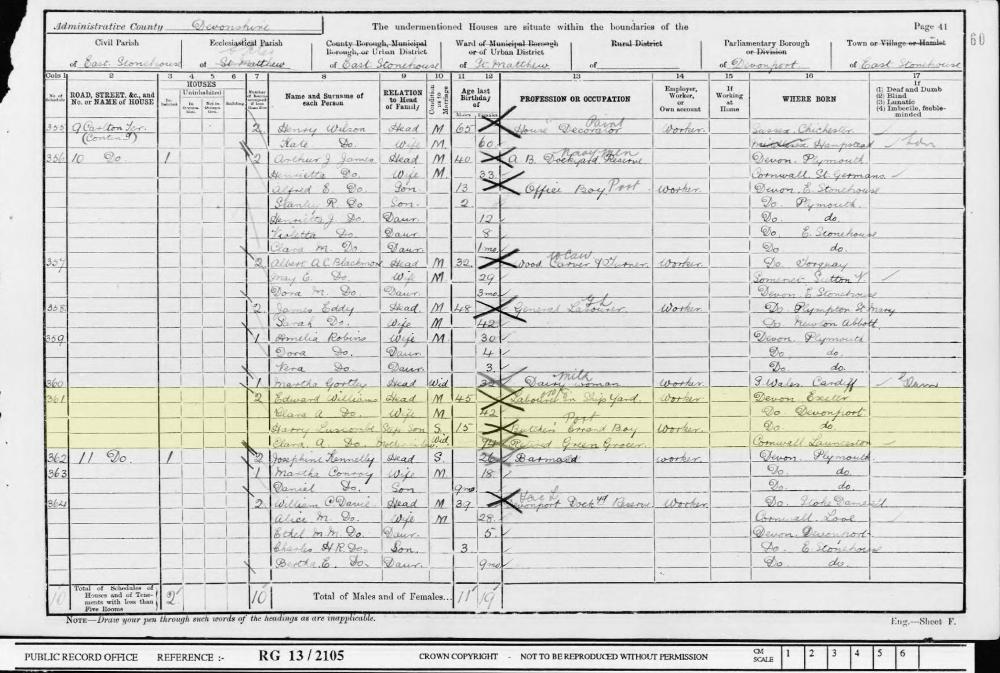 Administrative County Devonshire The undermentioned Houses are situate within the boundaries of the Page 41
60
Civil Parish Ecclesiastical Parish County Borough, Municipal Borough, or Urban District Ward of Municipal Borough or of Urban District Rural District Parliamentary Borough or Division Town or Village or Hamlet
of East Stonehouse of St. Matthew of East Stonehouse of St. Matthew of of Devonport of East Stonehouse
Cols 1 2 3 4 5 6 7 8 9 10 11 12 13 14 15 16 17
No. of Schedule ROAD, STREET, &c., and No. or NAME of HOUSE HOUSES Inhabited Uninhabited In Occupation Not in Occupation Building Name and Surname of each Person RELATION to Head of Family Condition as to Marriage Age last Birthday of PROFESSION OR OCCUPATION Employer, Worker, or Own account If Working at Home WHERE BORN If (1) Deaf and Dumb (2) Blind (3) Lunatic (4) Imbecile, feeble-minded
355 9 Carlton Ter. (Contin'd) 2 Henry Wilson Head M 65 House Paint Decorator Worker Sussex Chichester
Kate Do. Wife M 60 Hampstead Lon
356 10 Do. 1 2 Arthur J James Head M 40 A. B. Dockyard Reserve Navy Men Devon Plymouth
Henrietta Do. Wife M 33 Cornwall St. Germans
Alfred E. Do Son 13 Office Boy Port Worker Devon E. Stonehouse
Stanley R Do Son 2 Do. Plymouth
Henriett J Do Daur. 12 Do. do.
Violetta Do. Daur 8 Do. E. Stonehouse
Clara M. Do. Daur. 1mo Do do.
357 2 Albert A. C. Blackmore Head M 32 Wood Carver & Turner Worker Do. Torquay
May E. Do. Wife M 29 Somerset Sutton V.
Dora M. Do. Daur. 3mo Devon E Stonehouse
358 2 James Eddy Head M 48 General Labourer G L Worker Do Plympton St Mary
Sarah Do. Wife M 42 Do. Newton Abbott
359 1 Amelia Robins Wife M 30 Devon. Plymouth
Dora Do. Daur 4 Do. do.
Vera Do. Daur 3 Do do.
360 1 Martha Gortley Head Wid Dairy woman Milk Worker S. Wales Cardiff
361 2 Edward Williams Head M 45 Labourer In Ship Yard. Worker Devon Exeter
Clara A Do. Wife M 42 Do. Devonport
Harry Luscomb Step Son S. 15 Butcher's Errand Boy Port Worker Do. do.
Clara. A. Do. Wid 74 Retired Green Grocer. Cornwall Launceston
362 11 Do. 1 2 Josephine Kennelly Head S. 26 Barmaid worker Devon. Plymouth
363 Martha Conroy Wife M 18 Do. do.
Daniel Do. Son 9mo Do. do.
364 2 William C Davis Head M 39 Devonport Dock Reserve Worker Do. Stoke Damerel
Alice M. Do. Wife M 28 Cornwall. Looe
Ethel M. M. Do. Daur. 5 Devon Devonport
Charles H R Do. Son. 3 Do. E. Stonehouse
Bertha. E. Do. Daur. 9mo Do do.
10 Total of Schedules of Houses and of Tenements with less than Five Rooms 2 10 Total of Males and of Females... 11 19
NOTE—Draw your pen through such words of the headings as are inapplicable. Eng.—Sheet F.
PUBLIC RECORD OFFICE REFERENCE :- RG 13/2105 CROWN COPYRIGHT - NOT TO BE REPRODUCED WITHOUT PERMISSION CM SCALE 1 2 3 4 5 6